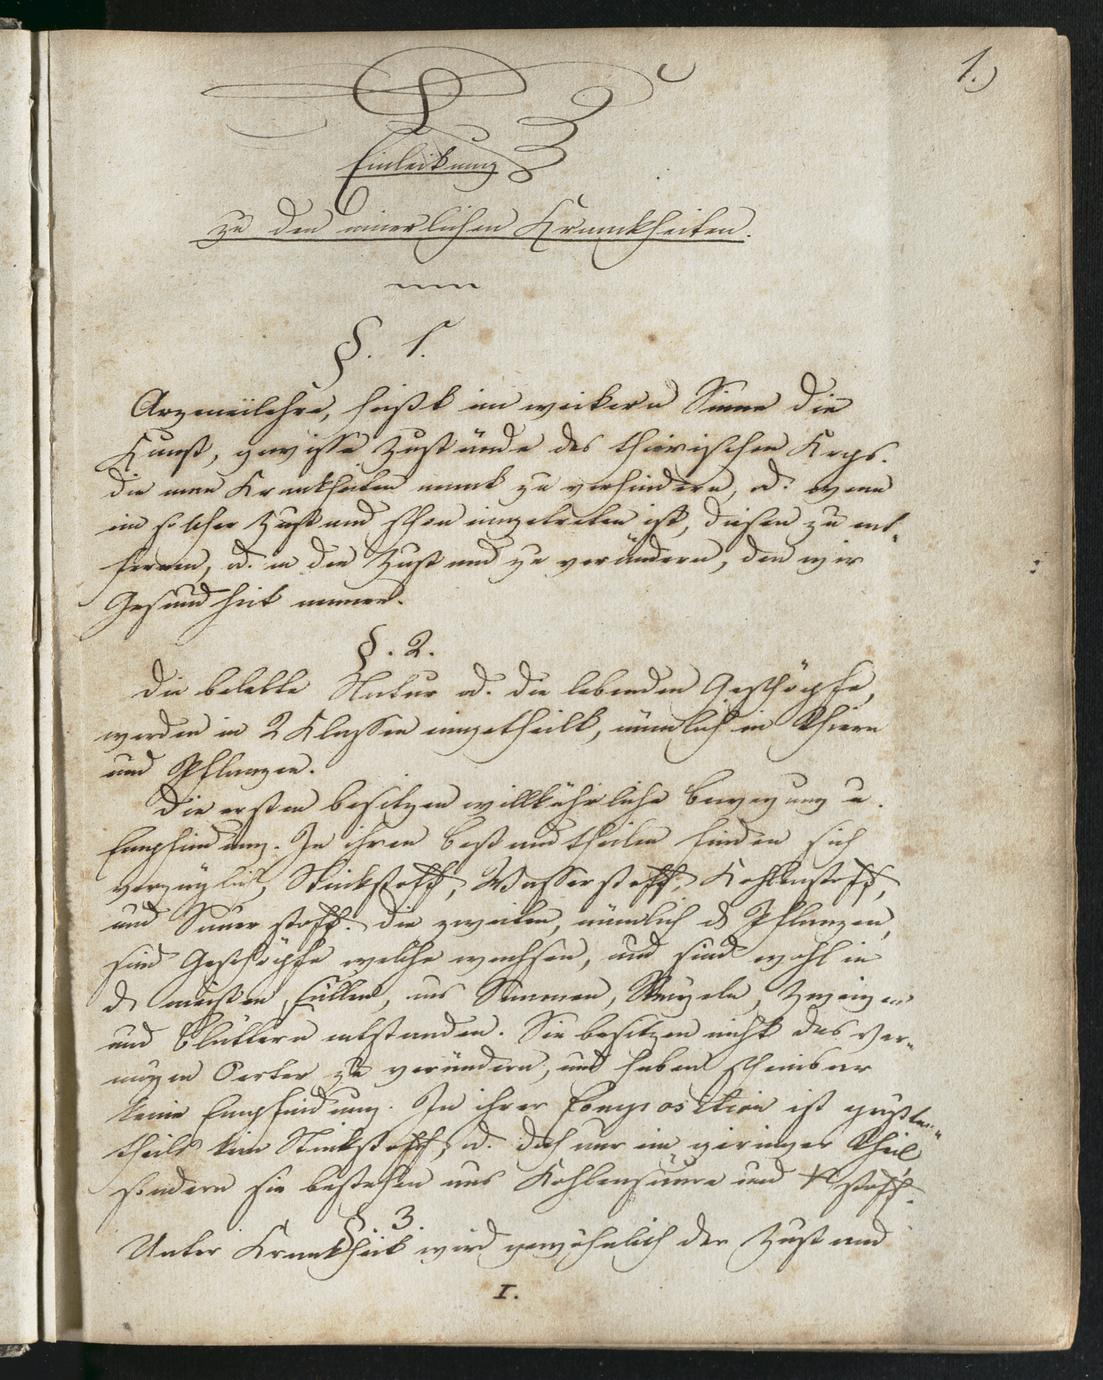 1.)
Einleitung
zu den innerlichen Krankheiten.
§. 1.
Arzeneilehre, heißt im weitern Sinne die
Kunst, gewisse Zustände des thierischen Krps.
die man Krankheiten nennt zu verhindern, od. wenn
ein solcher Zustand schon eingetreten ist, diesen zu ent-
fernen, od. in den Zustand zu verändern, den wir
Gesundheit nennen.
§. 2.
Die belebte Natur od. die lebenden Geschöpfe,
werden in 2 Klassen eingetheilt, nämlich in Thiere
und Pflanzen.
Die ersten besitzen willkührliche Bewegung u.
Empfindung. In ihren Bestandtheilen finden sich
vorzüglich, Stickstoff, Wasserstoff, Kohlenstoff,
und Sauerstoff. Die zweiten, nämlich d Pflanzen,
sind Geschöpfe welche wachsen, und sind wohl in
d. meisten Fällen, aus Saamen, Wurzeln, Zweigen
und Blättern entstanden. Sie besitzen nicht das Ver-
mögen Oerter zu verändern, und haben scheinbar
keine Empfindung. In ihrer Composition ist größten-
theils kein Stickstoff, od. doch nur ein geringer Theil
sondern sie bestehen aus Kohlensäure und stoff.
§. 3.
Unter Krankheit wird gewöhnlich der Zustand
I.